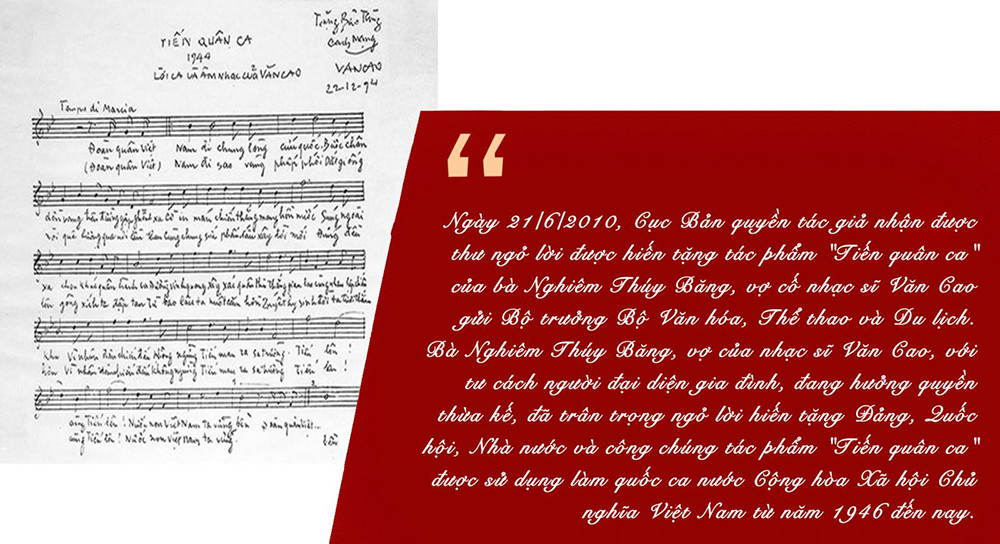 Tặng Bảo Tàng
Cách Mạng
VĂN CAO
22-12-94
TIẾN QUÂN CA
1944
LỜI CA VÀ ÂM NHẠC CỦA VĂN CAO
Tempo di Marcia
Đoàn quân Việt Nam đi chung lòng cứu quốc. Bước chân
(Đoàn quân Việt) Nam đi sao vàng phấp phới Dắt giống
dồn vang trên đường gập ghềnh xa Cờ in máu chiến thắng mang hồn nước Súng ngoài
nòi quê hương qua nơi lầm than Cùng chung sức phấn đấu xây đời mới Đứng đều
xa chen khúc quân hành ca Đường vinh quang xây xác quân thù Thắng gian lao cùng nhau lập chiến
lên gông xích ta đập tan Từ bao lâu ta nuốt căm hờn Quyết hy sinh đời ta tươi thắm
khu Vì nhân dân chiến đấu không ngừng Tiến mau ra sa trường Tiến lên !
hơn Vì nhân dân chiến đấu không ngừng Tiến mau ra sa trường Tiến lên !
cùng Tiến lên ! Nước non Việt Nam ta vững bền Đoàn quân Việt...
cùng Tiến lên ! Nước non Việt Nam ta vững bền
“
Ngày 21/6/2010, Cục Bản quyền tác giả nhận được
thư ngỏ lời được hiến tặng tác phẩm "Tiến quân ca"
của bà Nghiêm Thúy Băng, vợ cố nhạc sĩ Văn Cao
gửi Bộ trưởng Bộ Văn hóa, Thể thao và Du lịch.
Bà Nghiêm Thúy Băng, vợ của nhạc sĩ Văn Cao, với
tư cách người đại diện gia đình, đang hưởng quyền
thừa kế, đã trân trọng ngỏ lời hiến tặng Đảng, Quốc
hội, Nhà nước và công chúng tác phẩm "Tiến quân ca"
được sử dụng làm quốc ca nước Cộng hòa Xã hội Chủ
nghĩa Việt Nam từ năm 1946 đến nay.